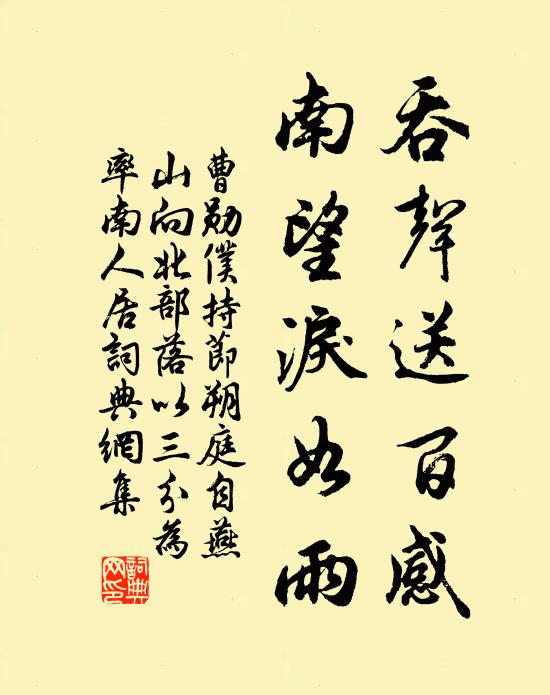 吞聲送百感
南望淚如雨
曹勛僕持節朔庭自燕
山向北部落以三分為
率南人居詞典網集
詞典網印